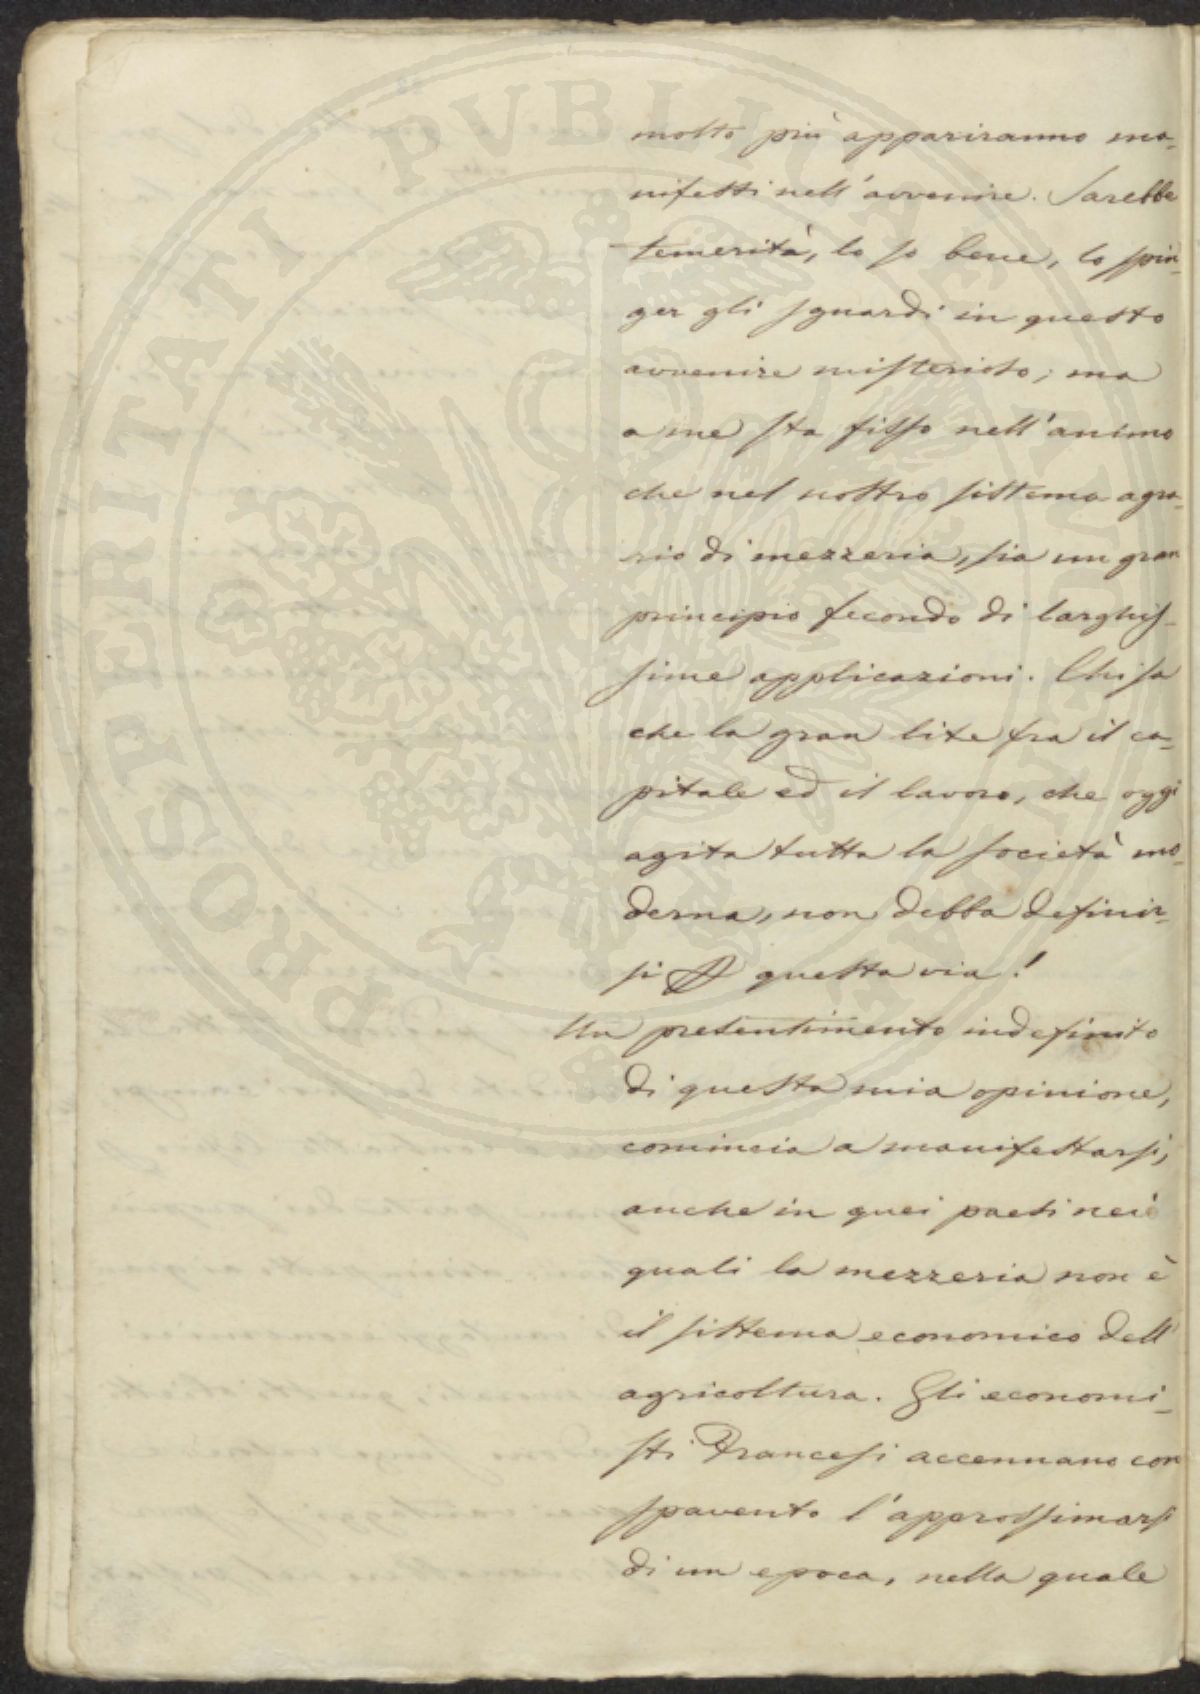 molto più appariranno ma-
nifesti nell'avvenire. Sarebbe
temerità, lo so bene, lo spin-
ger gli sguardi in questo
avvenire misterioso; ma
a me sta fisso nell'animo
che nel nostro sistema agra-
rio di mezzeria, sia un gran
principio fecondo di larghis-
sime applicazioni. Chi sa
che la gran lite fra il ca-
pitale ed il lavoro, che oggi
agita tutta la società mo-
derna, non debba definir-
si questa via!
Un presentimento indefinito
di questa mia opinione,
comincia a manifestarsi,
anche in quei paesi nei
quali la mezzeria non è
il sistema economico dell'
agricoltura. Gli economi-
sti Francesi accennano con
spavento l'approssimarsi
di un epoca, nella quale
PROSPERITATI PVBLICAE